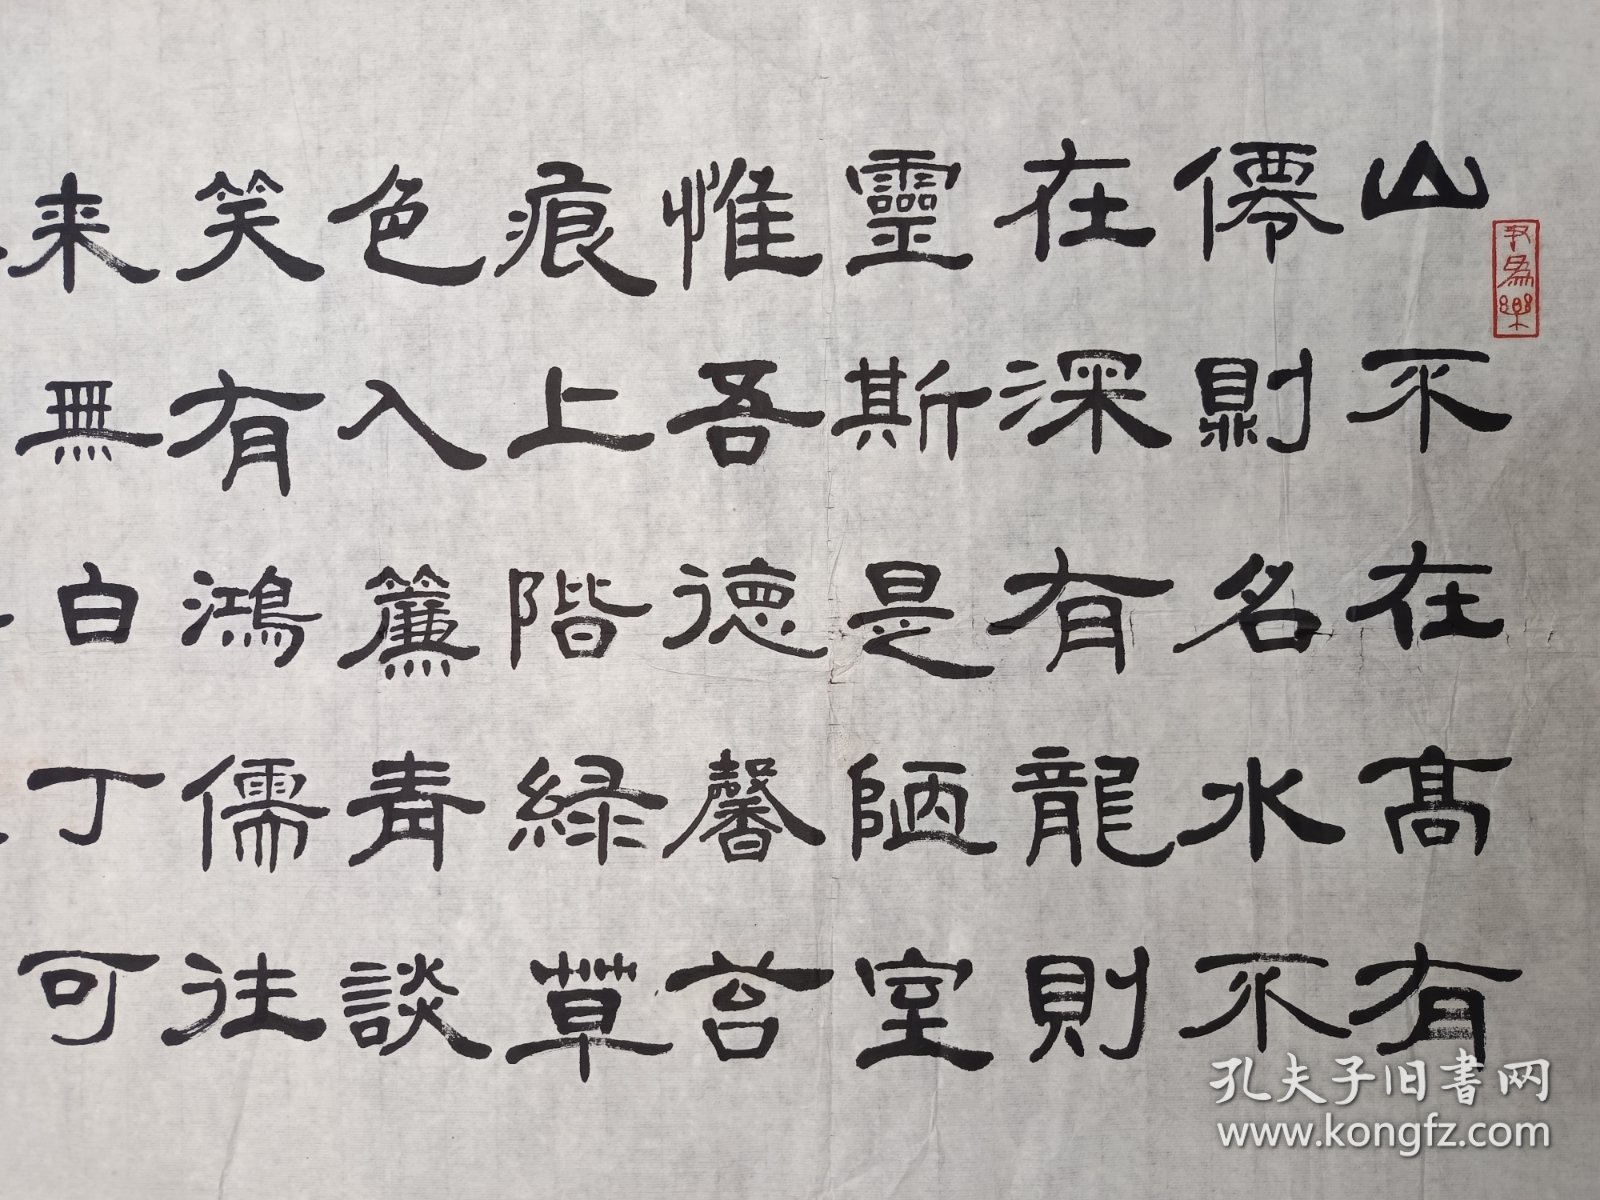 山不在高有
僊則名水不
在深有龍則
靈斯是陋室
惟吾德馨苔
痕上階緑草
色入簾青談
笑有鴻儒往
来無白丁可
孔夫子旧书网
www.kongfz.com